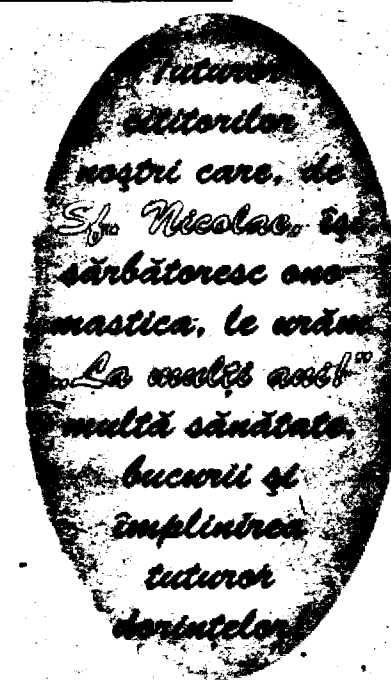 Tuturor
cititorilor
noștri care, de
Sf. Nicolae, își
sărbătoresc ono-
mastica, le urăm
„La mulți ani!”
multă sănătate,
bucurii și
împlinirea
tuturor
dorințelor!